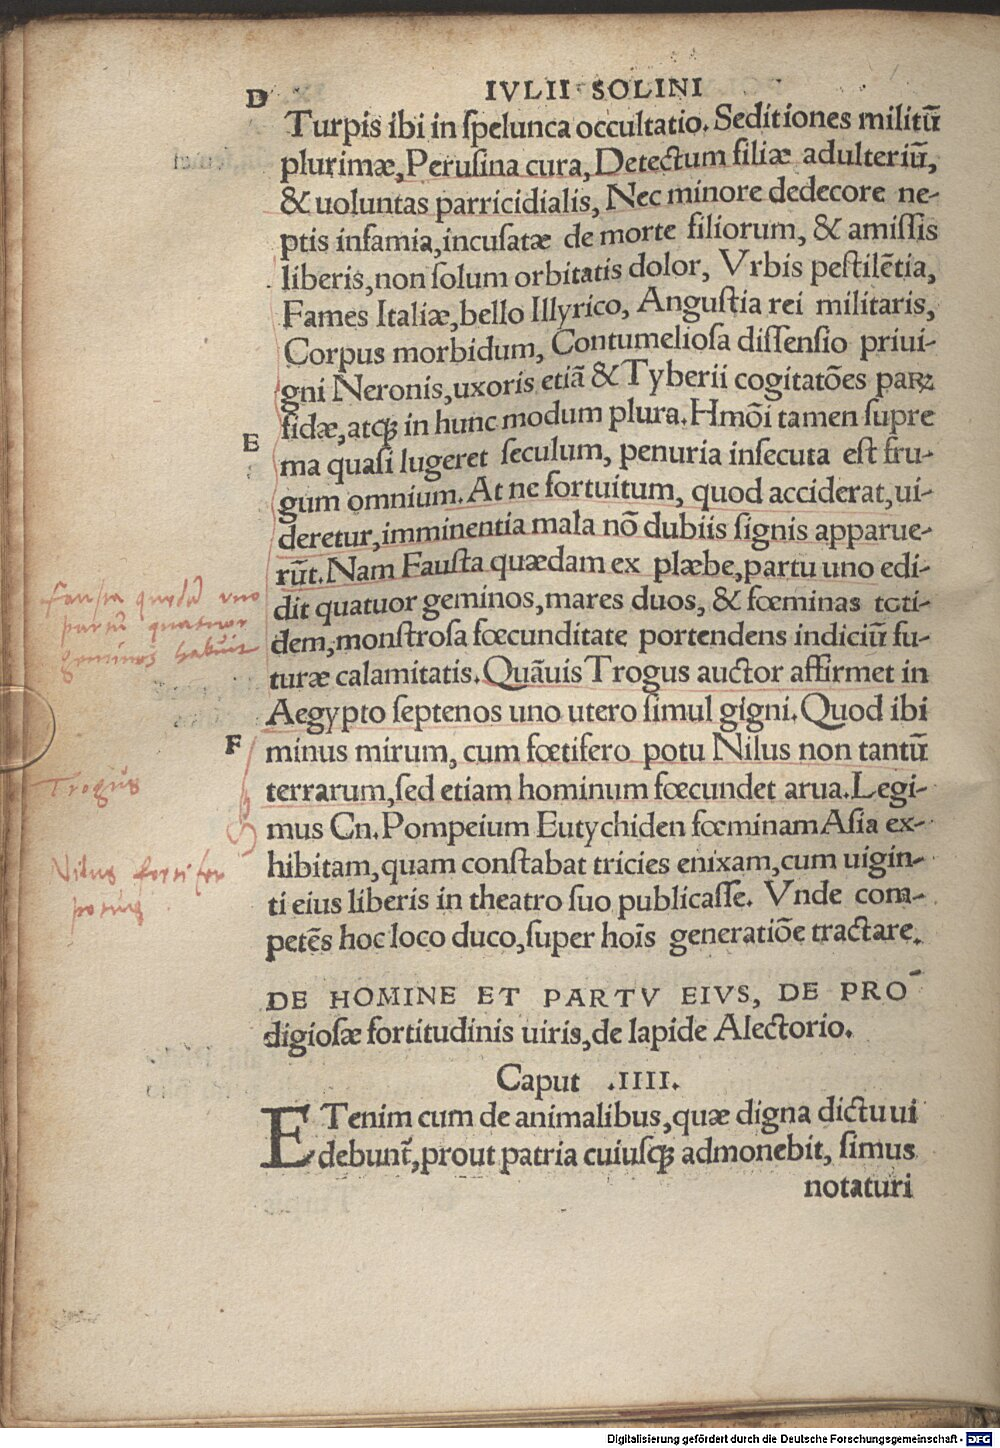 D IVLII SOLINI
Turpis ibi in ſpelunca occultatio. Seditiones militũ
plurimæ, Peruſina cura, Detectum filiæ adulteriũ,
& uoluntas parricidialis, Nec minore dedecore ne-
ptis infamia, incuſatæ de morte filiorum, & amiſſis
liberis, non ſolum orbitatis dolor, Vrbis peſtilẽtia,
Fames Italiæ, bello Illyrico, Anguſtia rei militaris,
Corpus morbidum, Contumelioſa diſſenſio priui-
gni Neronis, uxoris etiã & Tyberii cogitatões paꝝ
fidæ, atqꝫ in hunc modum plura. Hmõi tamen ſupre
E
ma quaſi lugeret ſeculum, penuria inſecuta eſt fru-
gum omnium. At ne fortuitum, quod acciderat, ui-
deretur, imminentia mala nõ dubiis ſignis apparue-
rũt. Nam Fauſta quædam ex plæbe, partu uno edi-
dit quatuor geminos, mares duos, & fœminas toti-
dem, monſtroſa fœcunditate portendens indiciũ fu-
turæ calamitatis. Quãuis Trogus auctor affirmet in
Aegypto ſeptenos uno utero ſimul gigni. Quod ibi
F
minus mirum, cum fœtifero potu Nilus non tantũ
terrarum, ſed etiam hominum fœcundet arua. Legi-
mus Cn. Pompeium Eutychiden fœminam Aſia ex-
hibitam, quam conſtabat tricies enixam, cum uigin-
ti eius liberis in theatro ſuo publicaſſe. Vnde com-
petẽs hoc loco duco, ſuper hoĩs generatiõe tractare.
Fauſta quedã vno
partu quatuor
geminos habuit
Trogus
Nilus
potus
DE HOMINE ET PARTV EIVS, DE PRO-
digioſæ fortitudinis uiris, de lapide Alectorio.
Caput .IIII.
ETenim cum de animalibus, quæ digna dictu ui
debunt̃, prout patria cuiuſqꝫ admonebit, ſimus
notaturi
Digitalisierung gefördert durch die Deutsche Forschungsgemeinschaft - DFG